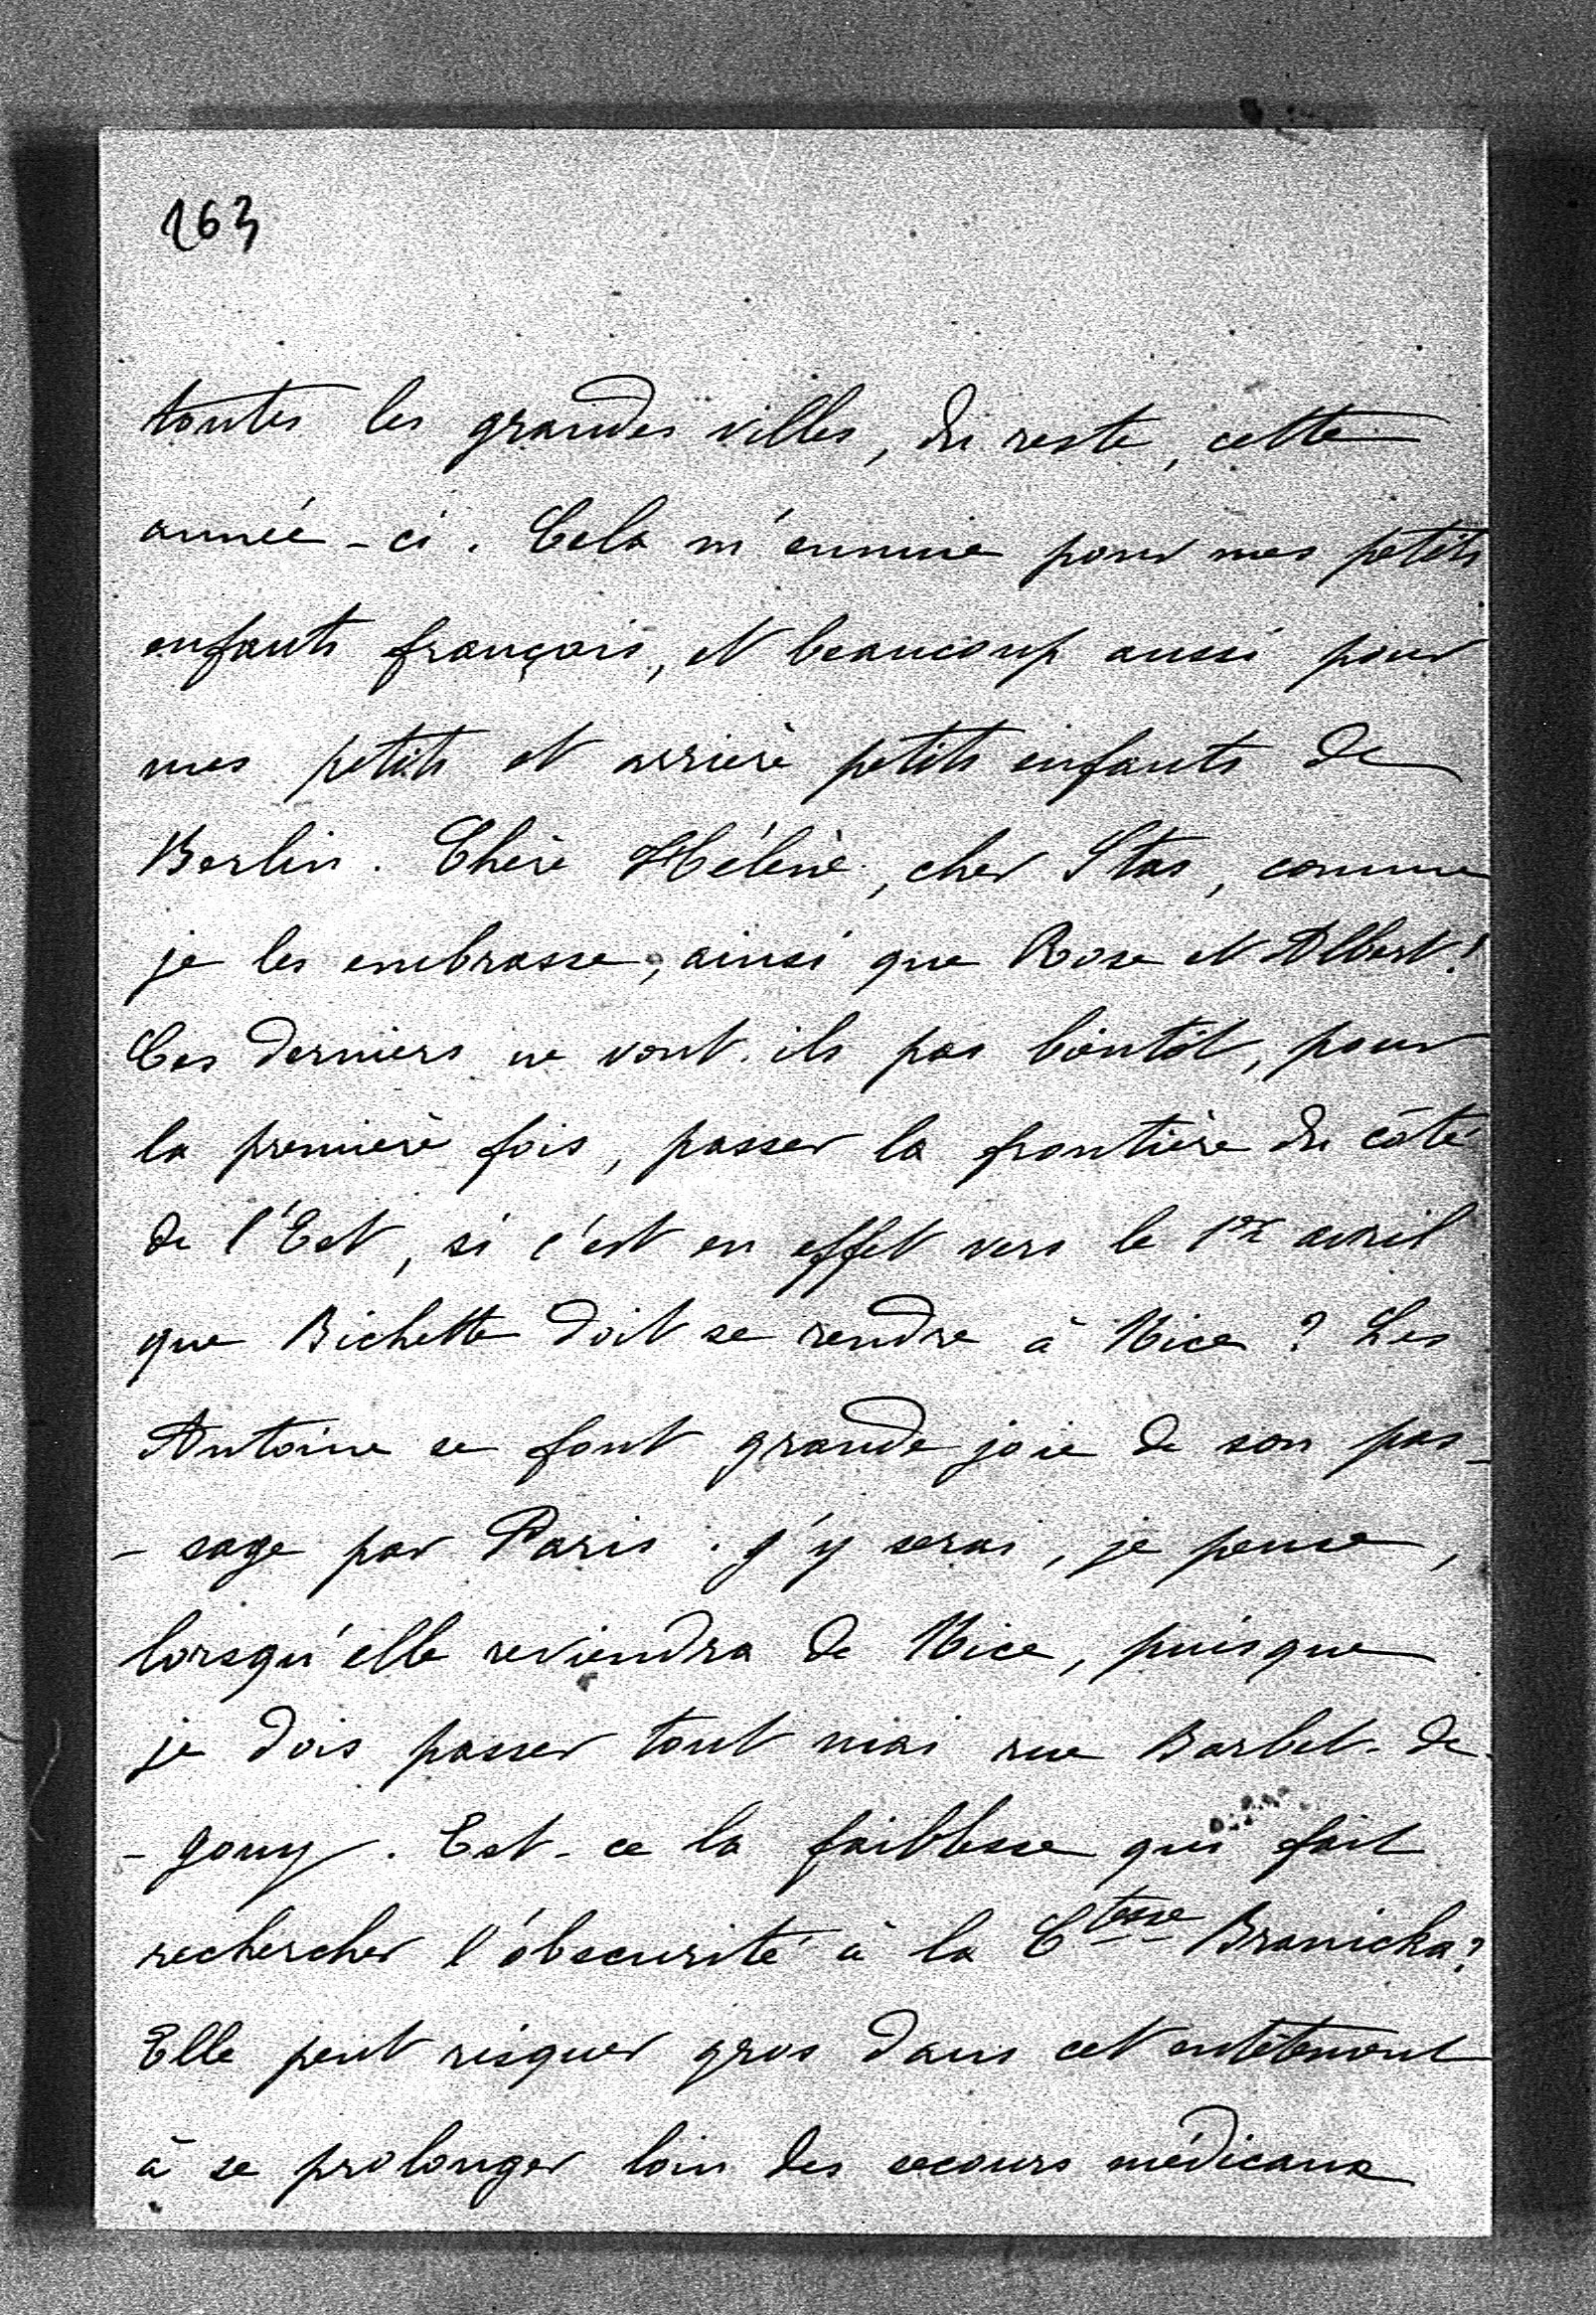 163
toutes les grandes villes, du reste, cette
année-ci. Cela m'ennuie pour mes petits
enfants français, et beaucoup aussi pour
mes petits et arrière petits enfants de
Berlin. Chère Hélène, cher Stas, comme
je les embrasse, ainsi que Rose et Albert!
Ces derniers ne vont-ils pas bientôt, pour
la première fois, passer la frontière du côté
de l'Est, si c'est en effet vers le 1er avril
que Bichette doit se rendre à Nice? Les
Antoine se font grande joie de son pas-
-sage par Paris. J'y serai, je pense,
lorsqu'elle reviendra de Nice, puisque
je dois passer tout mai rue Barbet-de-
-Jouy. Est-ce la faiblesse qui fait
rechercher l'obscurité à la Ctesse Branicka?
Elle peut risquer gros dans cet entêtement
à se prolonger loin des secours médicaux